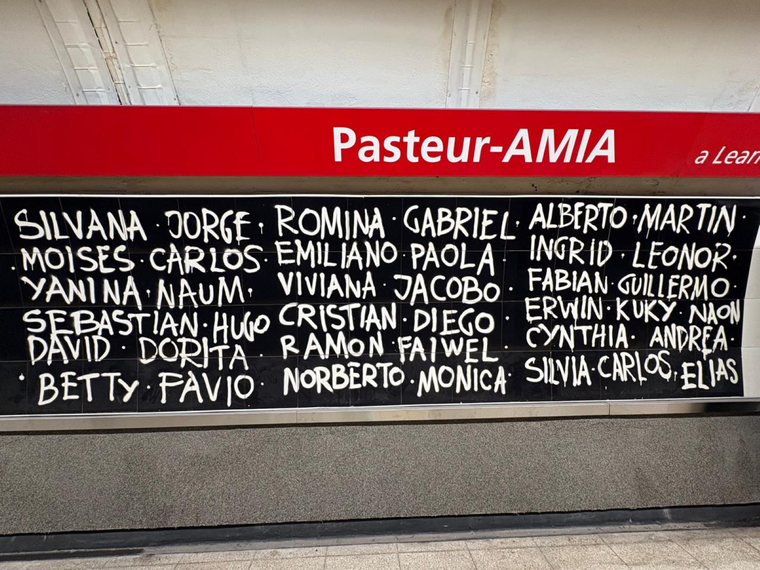 Pasteur-AMIA
a Lean
SILVANA · JORGE ·
· MOISES · CARLOS
YANINA · NAUM ·
SEBASTIAN · HUGO
DAVID · DORITA ·
· BETTY · FAVIO ·
ROMINA · GABRIEL ·
EMILIANO · PAOLA ·
VIVIANA · JACOBO ·
CRISTIAN · DIEGO
RAMON · FAIWEL ·
NORBERTO · MONICA ·
ALBERTO · MARTIN ·
INGRID · LEONOR ·
FABIAN · GUILLERMO ·
ERWIN · KUKY · NAON
CYNTHIA · ANDREA ·
SILVIA · CARLOS · ELIAS